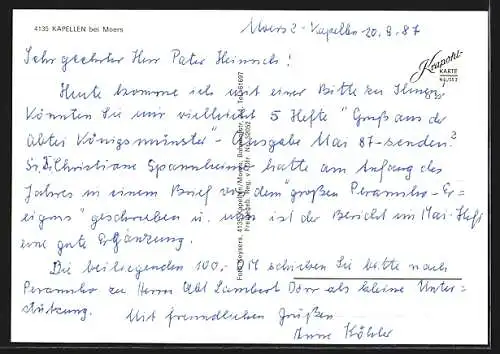 4135 KAPELLEN bei Moers
Moers 2 - Kapellen 20.9.87
Krapohl-
KARTE
Sehr geehrter Herr Pater Heinrich!
Heute komme ich mit einer Bitte zu Ihnen.
Könnten Sie mir vielleicht 5 Hefte "Gruß aus der
Abtei Königsmünster" - Ausgabe Mai 87 - senden?
Sr. Christiane Spannheimer hatte am Anfang des
Jahres in einem Brief von dem "großen Peramiho-Er=
eignis" geschrieben u. nun ist der Bericht im Mai-Heft
eine gute Ergänzung.
Die beiliegenden 100,- M schicken Sie bitte nach
Peramiho zu Herrn Abt Lambert Dörr als kleine Unter=
stützung.
Mit freundlichen Grüßen
Anne Köhler